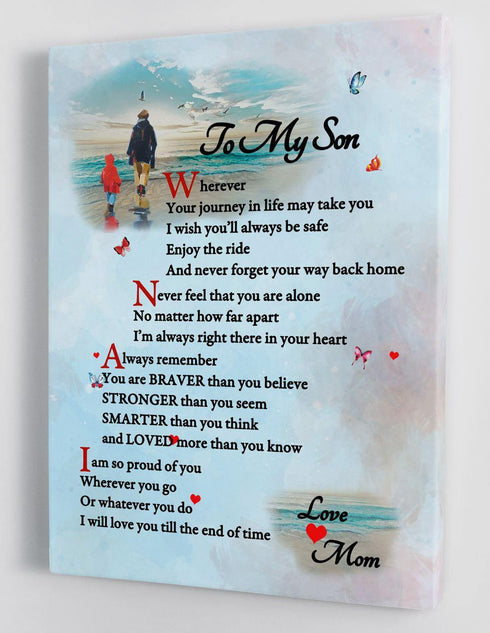 To My Son
Wherever
Your journey in life may take you
I wish you'll always be safe
Enjoy the ride
And never forget your way back home
Never feel that you are alone
No matter how far apart
I'm always right there in your heart
Always remember
You are BRAVER than you believe
STRONGER than you seem
SMARTER than you think
and LOVED more than you know
I am so proud of you
Wherever you go
Or whatever you do
I will love you till the end of time
Love
Mom